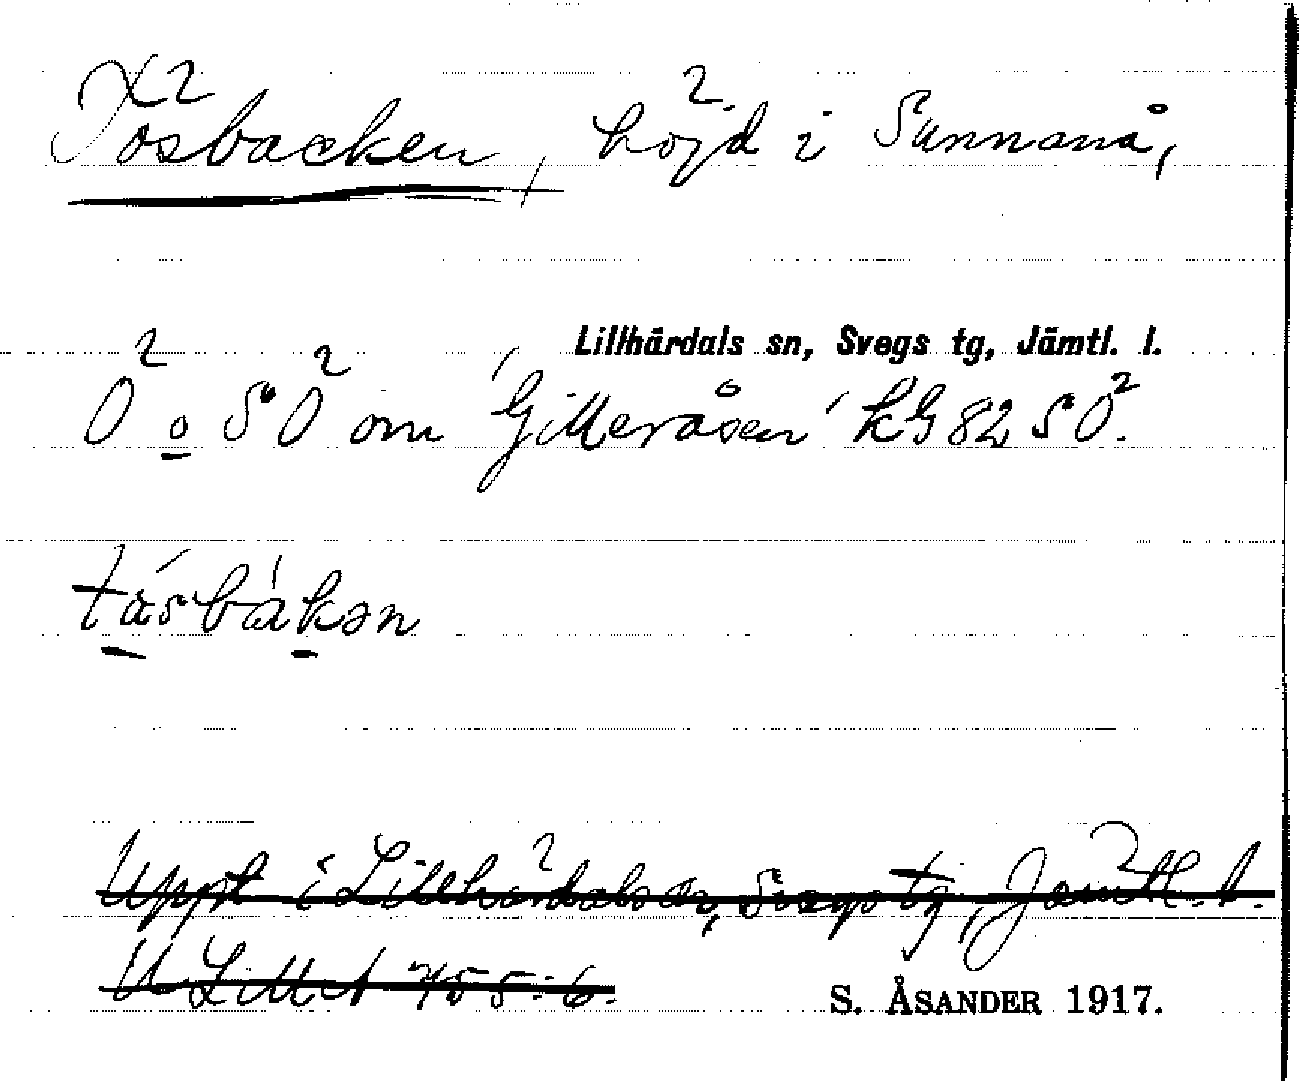 Tösbacken, höjd i Sunnanå,
Lillhärdals sn, Svegs tg, Jämtl. l.
Ö o SÖ om 'Gilleråsen' kG 82 SÖ.
tåsbakən
Uppt i Lillhärdals sn, Svegs tg, Jämtl. l.
S. ÅSANDER 1917.